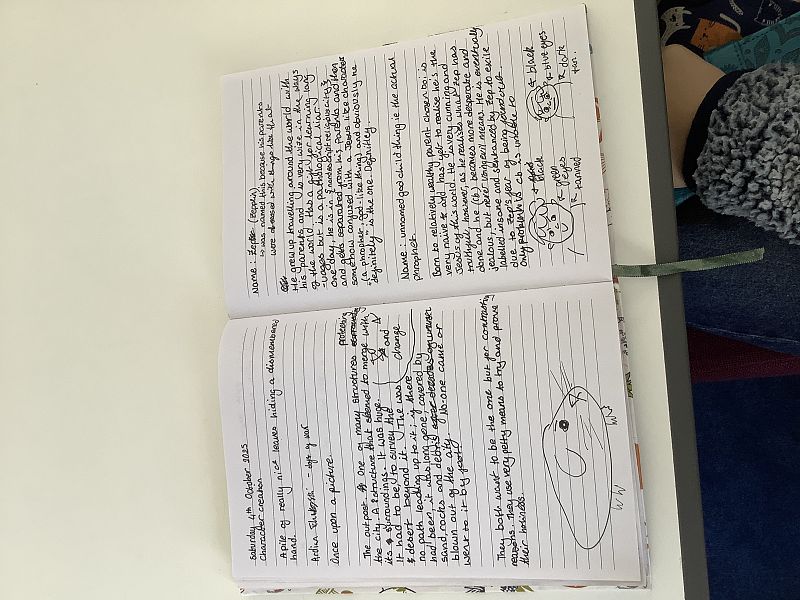 Saturday 4th October 2025
Character creation
A pile of really nice leaves hiding a dismembered
hand.
Ardian - dogs of war
Once upon a picture.
protecting
The outpost one of many structures
the city. A structure that seemed to merge with
its surroundings. It was huge.
It had to be, to survey the and
desert beyond it. There was change
no path leading up to it; if there
had been, it was long gone covered by
sand, rocks and debris
blown out of the city. No-one came or
went to it by
They both want to be the one but for contrasting
reasons. They use very petty means to try and prove
their holiness.
Name: (Zepph)
was named this because his parents
were obsessed with things like that
He grew up travelling around the world with
his parents and is very wise in the ways
of the world. Has a gift for learning lang
-uages but is a pathological liar.
One day, he is in
and gets separated from his parents and then
somehow confused with a Jesus like character
(a prophet god-like thing) and obviously he
definitely is the one. Definitely.
Name: unnamed good child thing ie the actual
phrophet
Born to relatively wealthy parent chosen bo is
very naive and has yet to realise he's the
Jesus of this world. He is very cunning and
truthful, however, as he realises what Zep has
done and he (it) becomes more desperate and
jealous, but never using evil means. He is eventually
labelled insane and sentenced by Zep to exile
due to Zep's fear of being powerful
only
black
green
eyes
tanned
black
blue eyes
dark
tan.